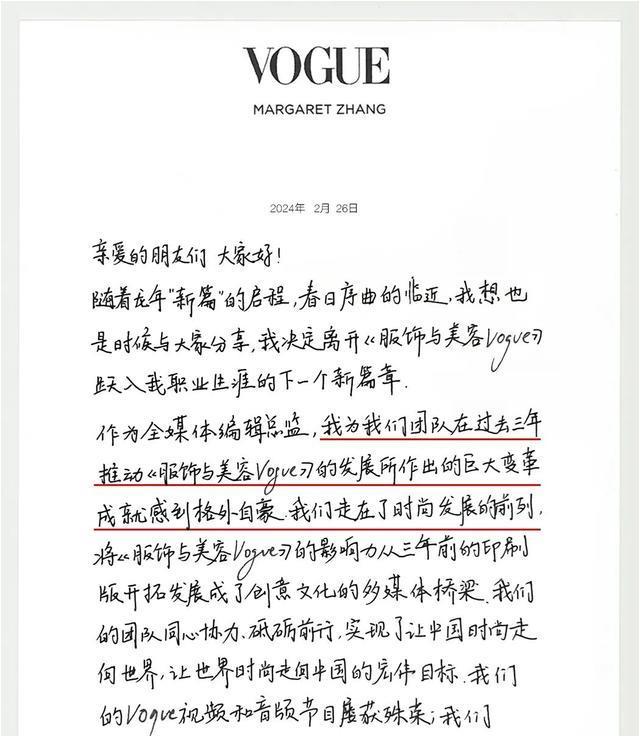 VOGUE
MARGARET ZHANG
2024年 2月 26日
亲爱的朋友们 大家好!
随着龙年"新篇"的启程,春日序曲的临近,我想也
是时候与大家分享,我决定离开《服饰与美容Vogue》
跃入我职业生涯的下一个新篇章.
作为全媒体编辑总监,我为我们团队在过去三年
推动《服饰与美容Vogue》的发展所作出的巨大变革
成就感到格外自豪.我们走在了时尚发展的前列,
将《服饰与美容Vogue》的影响力从三年前的印刷
版开拓发展成了创意文化的多媒体桥梁.我们
的团队同心协力、砥砺前行,实现了让中国时尚走
向世界,让世界时尚走向中国的宏伟目标.我们
的Vogue视频和音频节目屡获殊荣;我们